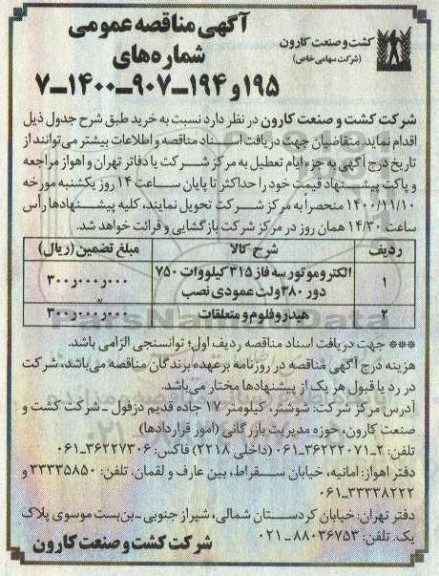 کشت و صنعت کارون
(شرکت سهامی خاص)
آگهی مناقصه عمومی
شماره‌های
۱۹۵ و ۱۹۴_۹۰۷_۱۴۰۰_۷
شرکت کشت و صنعت کارون در نظر دارد نسبت به خرید طبق شرح جدول ذیل
اقدام نماید. متقاضیان جهت دریافت اسناد مناقصه و اطلاعات بیشتر می‌توانند از
تاریخ درج آگهی به جزء ایام تعطیل به مرکز شرکت یا دفاتر تهران و اهواز مراجعه
و پاکت پیشنهاد قیمت خود را حداکثر تا پایان ساعت ۱۴ روز یکشنبه مورخه
۱۴۰۰/۱۱/۱۰ منحصراً به مرکز شرکت تحویل نمایند، کلیه پیشنهادها رأس
ساعت ۱۴/۳۰ همان روز در مرکز شرکت بازگشایی و قرائت خواهد شد.
ردیف شرح کالا مبلغ تضمین (ریال)
۱ الکتروموتور سه فاز ۳۱۵ کیلووات ۷۵۰
دور ۳۸۰ ولت عمودی نصب ۳۰۰ر۰۰۰ر۰۰۰
۲ هیدروفلوم و متعلقات ۳۰۰ر۰۰۰ر۰۰۰
*** جهت دریافت اسناد مناقصه ردیف اول؛ توانسنجی الزامی باشد.
هزینه درج آگهی مناقصه در روزنامه بر عهده برندگان مناقصه می‌باشد، شرکت
در رد یا قبول هر یک از پیشنهادها مختار می‌باشد.
آدرس مرکز شرکت: شوشتر، کیلومتر ۱۷ جاده قدیم دزفول _ شرکت کشت و
صنعت کارون، حوزه مدیریت بازرگانی (امور قراردادها)
تلفن: ۲_۳۶۲۲۲۰۷۱_۰۶۱ (داخلی ۲۲۱۸) فاکس: ۳۶۲۲۷۳۰۶_۰۶۱
دفتر اهواز: امانیه، خیابان سقراط، بین عارف و لقمان. تلفن: ۳۳۳۳۵۸۵۰ و
۳۳۳۳۸۲۲۲_۰۶۱
دفتر تهران: خیابان کردستان شمالی، شیراز جنوبی _ بن‌بست موسوی پلاک
یک. تلفن: ۸۸۰۳۶۷۵۳_۰۲۱
شرکت کشت و صنعت کارون